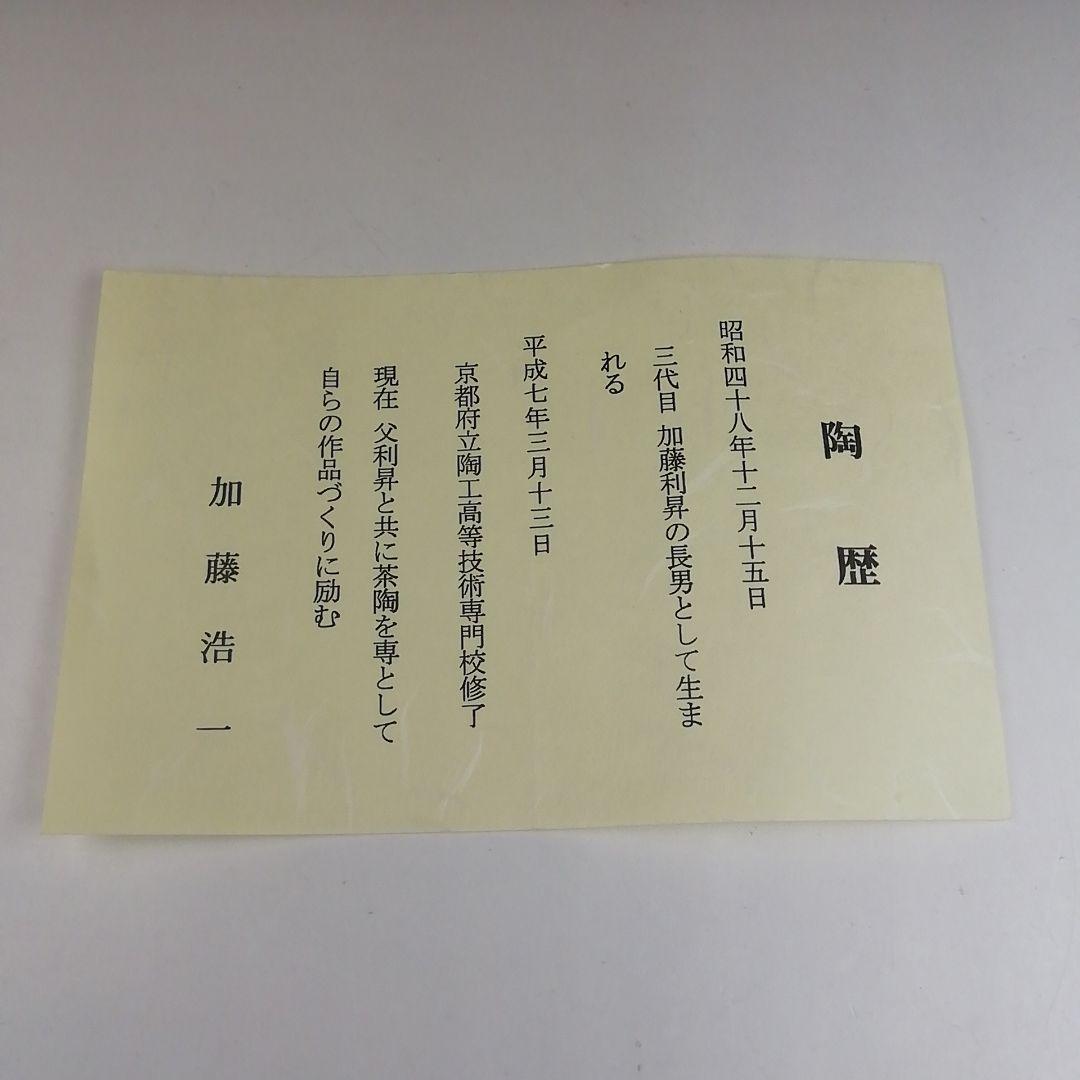 陶歴
昭和四十八年十二月十五日
三代目 加藤利昇の長男として生ま
れる
平成七年三月十三日
京都府立陶工高等技術専門校修了
現在 父利昇と共に茶陶を専として
自らの作品づくりに励む
加藤浩一